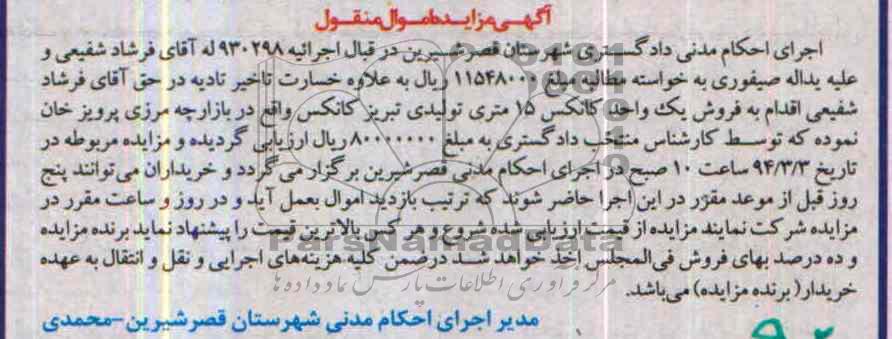 آگهی مزایده اموال منقول
اجرای احکام مدنی دادگستری شهرستان قصرشیرین در قبال اجرائیه ۹۳۰۲۹۸ له آقای فرشاد شفیعی و
علیه یداله صیفوری به خواسته مطالبه مبلغ ۱۱۵۴۸۰۰۰ ریال به علاوه خسارت تاخیر تادیه در حق آقای فرشاد
شفیعی اقدام به فروش یک واحد کانکس ۱۵ متری تولیدی تبریز کانکس واقع در بازارچه مرزی پرویز خان
نموده که توسط کارشناس منتخب دادگستری به مبلغ ۸۰۰۰۰۰۰۰ ریال ارزیابی گردیده و مزایده مربوطه در
تاریخ ۹۴/۳/۳ ساعت ۱۰ صبح در اجرای احکام مدنی قصرشیرین برگزار می گردد و خریداران می توانند پنج
روز قبل از موعد مقرر در این اجرا حاضر شوند که ترتیب بازدید اموال بعمل آید و در روز و ساعت مقرر در
مزایده شرکت نمایند مزایده از قیمت ارزیابی شده شروع و هر کس بالاترین قیمت را پیشنهاد نماید برنده مزایده
و ده درصد بهای فروش فی المجلس اخذ خواهد شد درضمن کلیه هزینه های اجرایی و نقل و انتقال به عهده
خریدار( برنده مزایده) می باشد.
مدیر اجرای احکام مدنی شهرستان قصرشیرین-محمدی
ParsNamadData
مرکز فرآوری اطلاعات پارس نماد داده ها